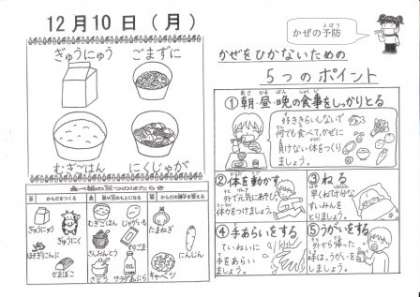 12月10日(月)
ぎゅうにゅう
ごまずに
むぎごはん
にくじゃが
ぎゅうにゅう
ぎゅうにく
むぎごはん
じゃがいも
さんおんとう
ごま
さとう
サラダあぶら
たまねぎ
にんじん
キャベツ
かぜの予防
よぼう
かぜをひかないための
5つのポイント
①朝・昼・晩の食事をしっかりとる
好ききらいしないで
何でも食べて、かぜに
負けない体をつくり
ましょう。
②体を動かす
外で元気にあそび、
体力をつけましょう。
③ねる
早くねて十分な
すいみんを
とりましょう。
④手あらいをする
ていねいに
手をあらい
ましょう。
⑤うがいをする
外から帰った
時は、うがいを
しましょう。